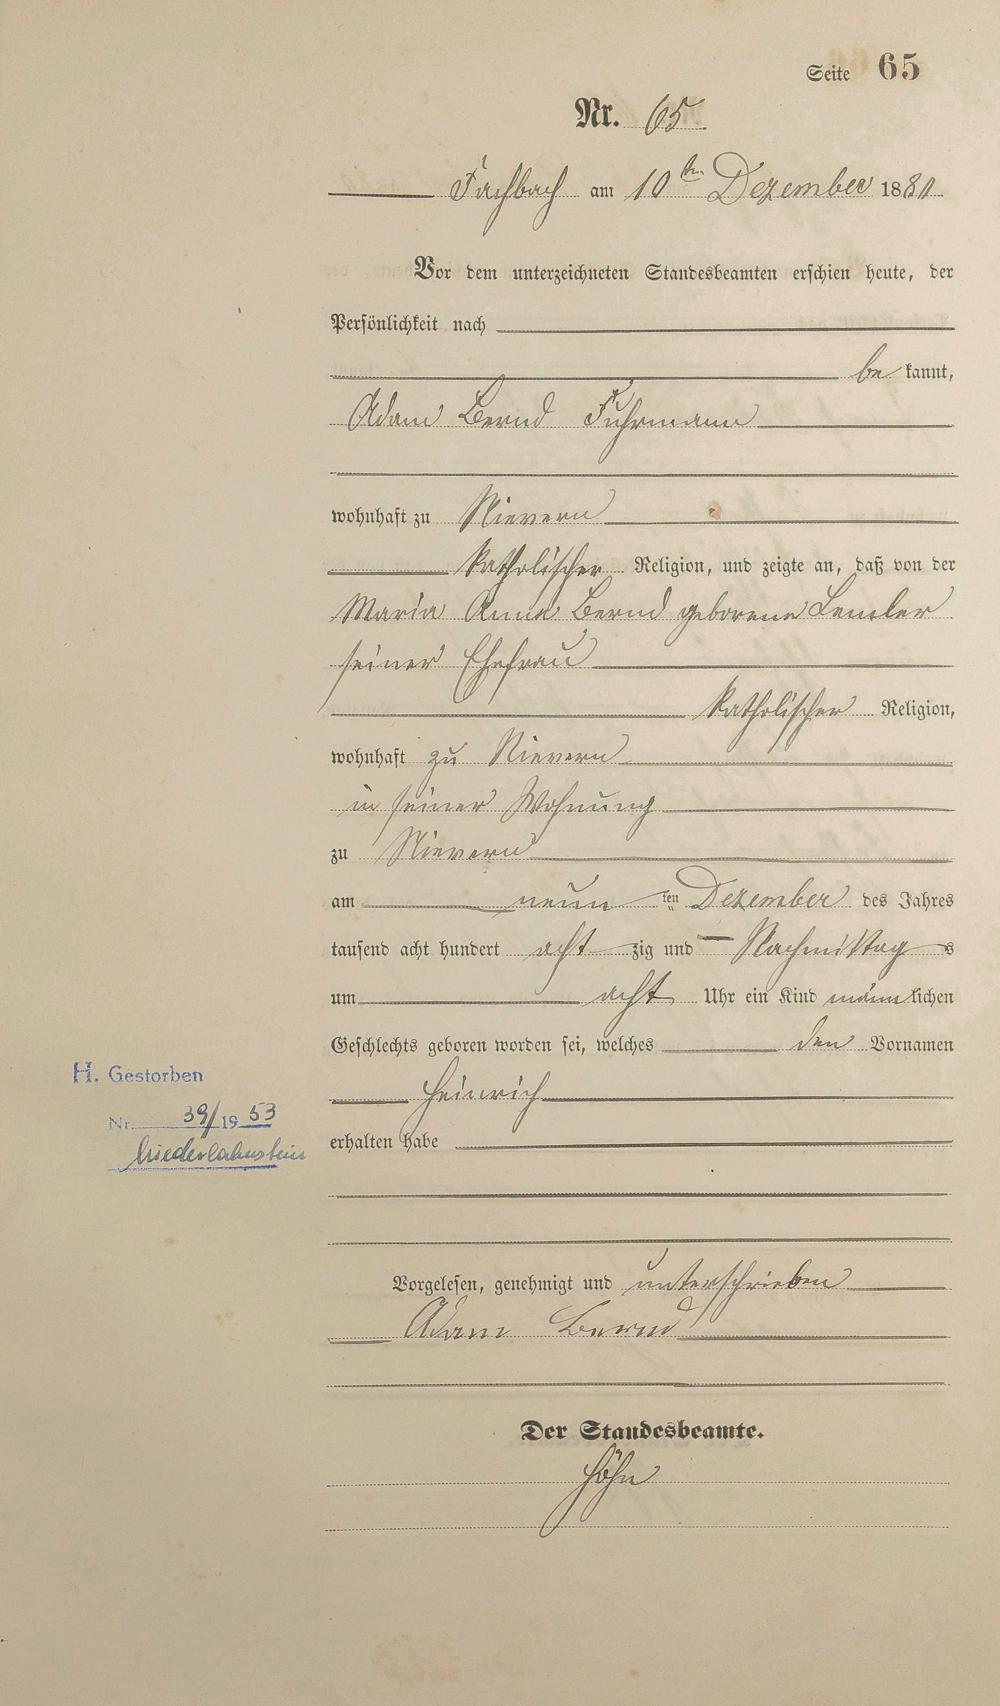 Seite 65
Nr. 65
Fachbach am 10ten Dezember 1880
Vor dem unterzeichneten Standesbeamten erschien heute, der
Persönlichkeit nach
be kannt,
Adam Bernd Fuhrmann
wohnhaft zu Nievern
katholischer Religion, und zeigte an, daß von der
Maria Anna Bernd geborene Lemler
seiner Ehefrau
katholischer Religion,
wohnhaft zu Nievern
in seiner Wohnung
zu Nievern
am neun ten Dezember des Jahres
tausend acht hundert acht zig und Nachmittag s
um acht Uhr ein Kind männlichen
Geschlechts geboren worden sei, welches den Vornamen
Heinrich
erhalten habe
H. Gestorben
Nr. 39/1953
Niederlahnstein
Vorgelesen, genehmigt und unterschrieben
Adam Bernd
Der Standesbeamte.
Höhn